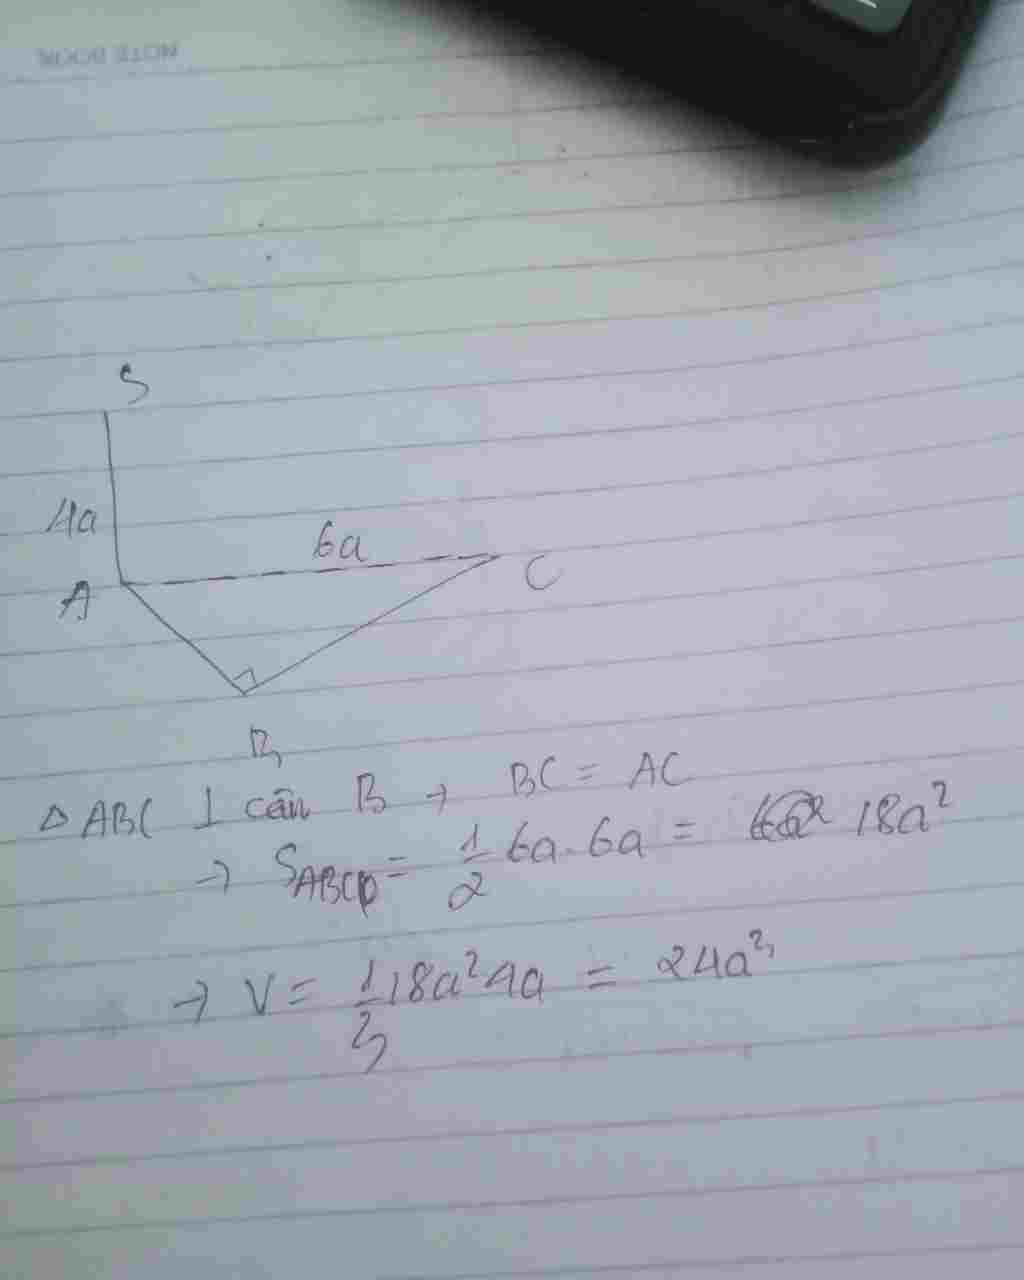 NOTE BOOK
S
4a
6a
A
C
B
Δ ABC ⊥ cân B → BC = AC
→ S_ABCD = 1/2 6a . 6a = 18a²
→ V = 1/3 18a² 4a = 24a³